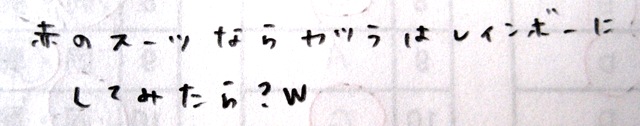 赤のスーツならカツラはレインボーに
してみたら?W